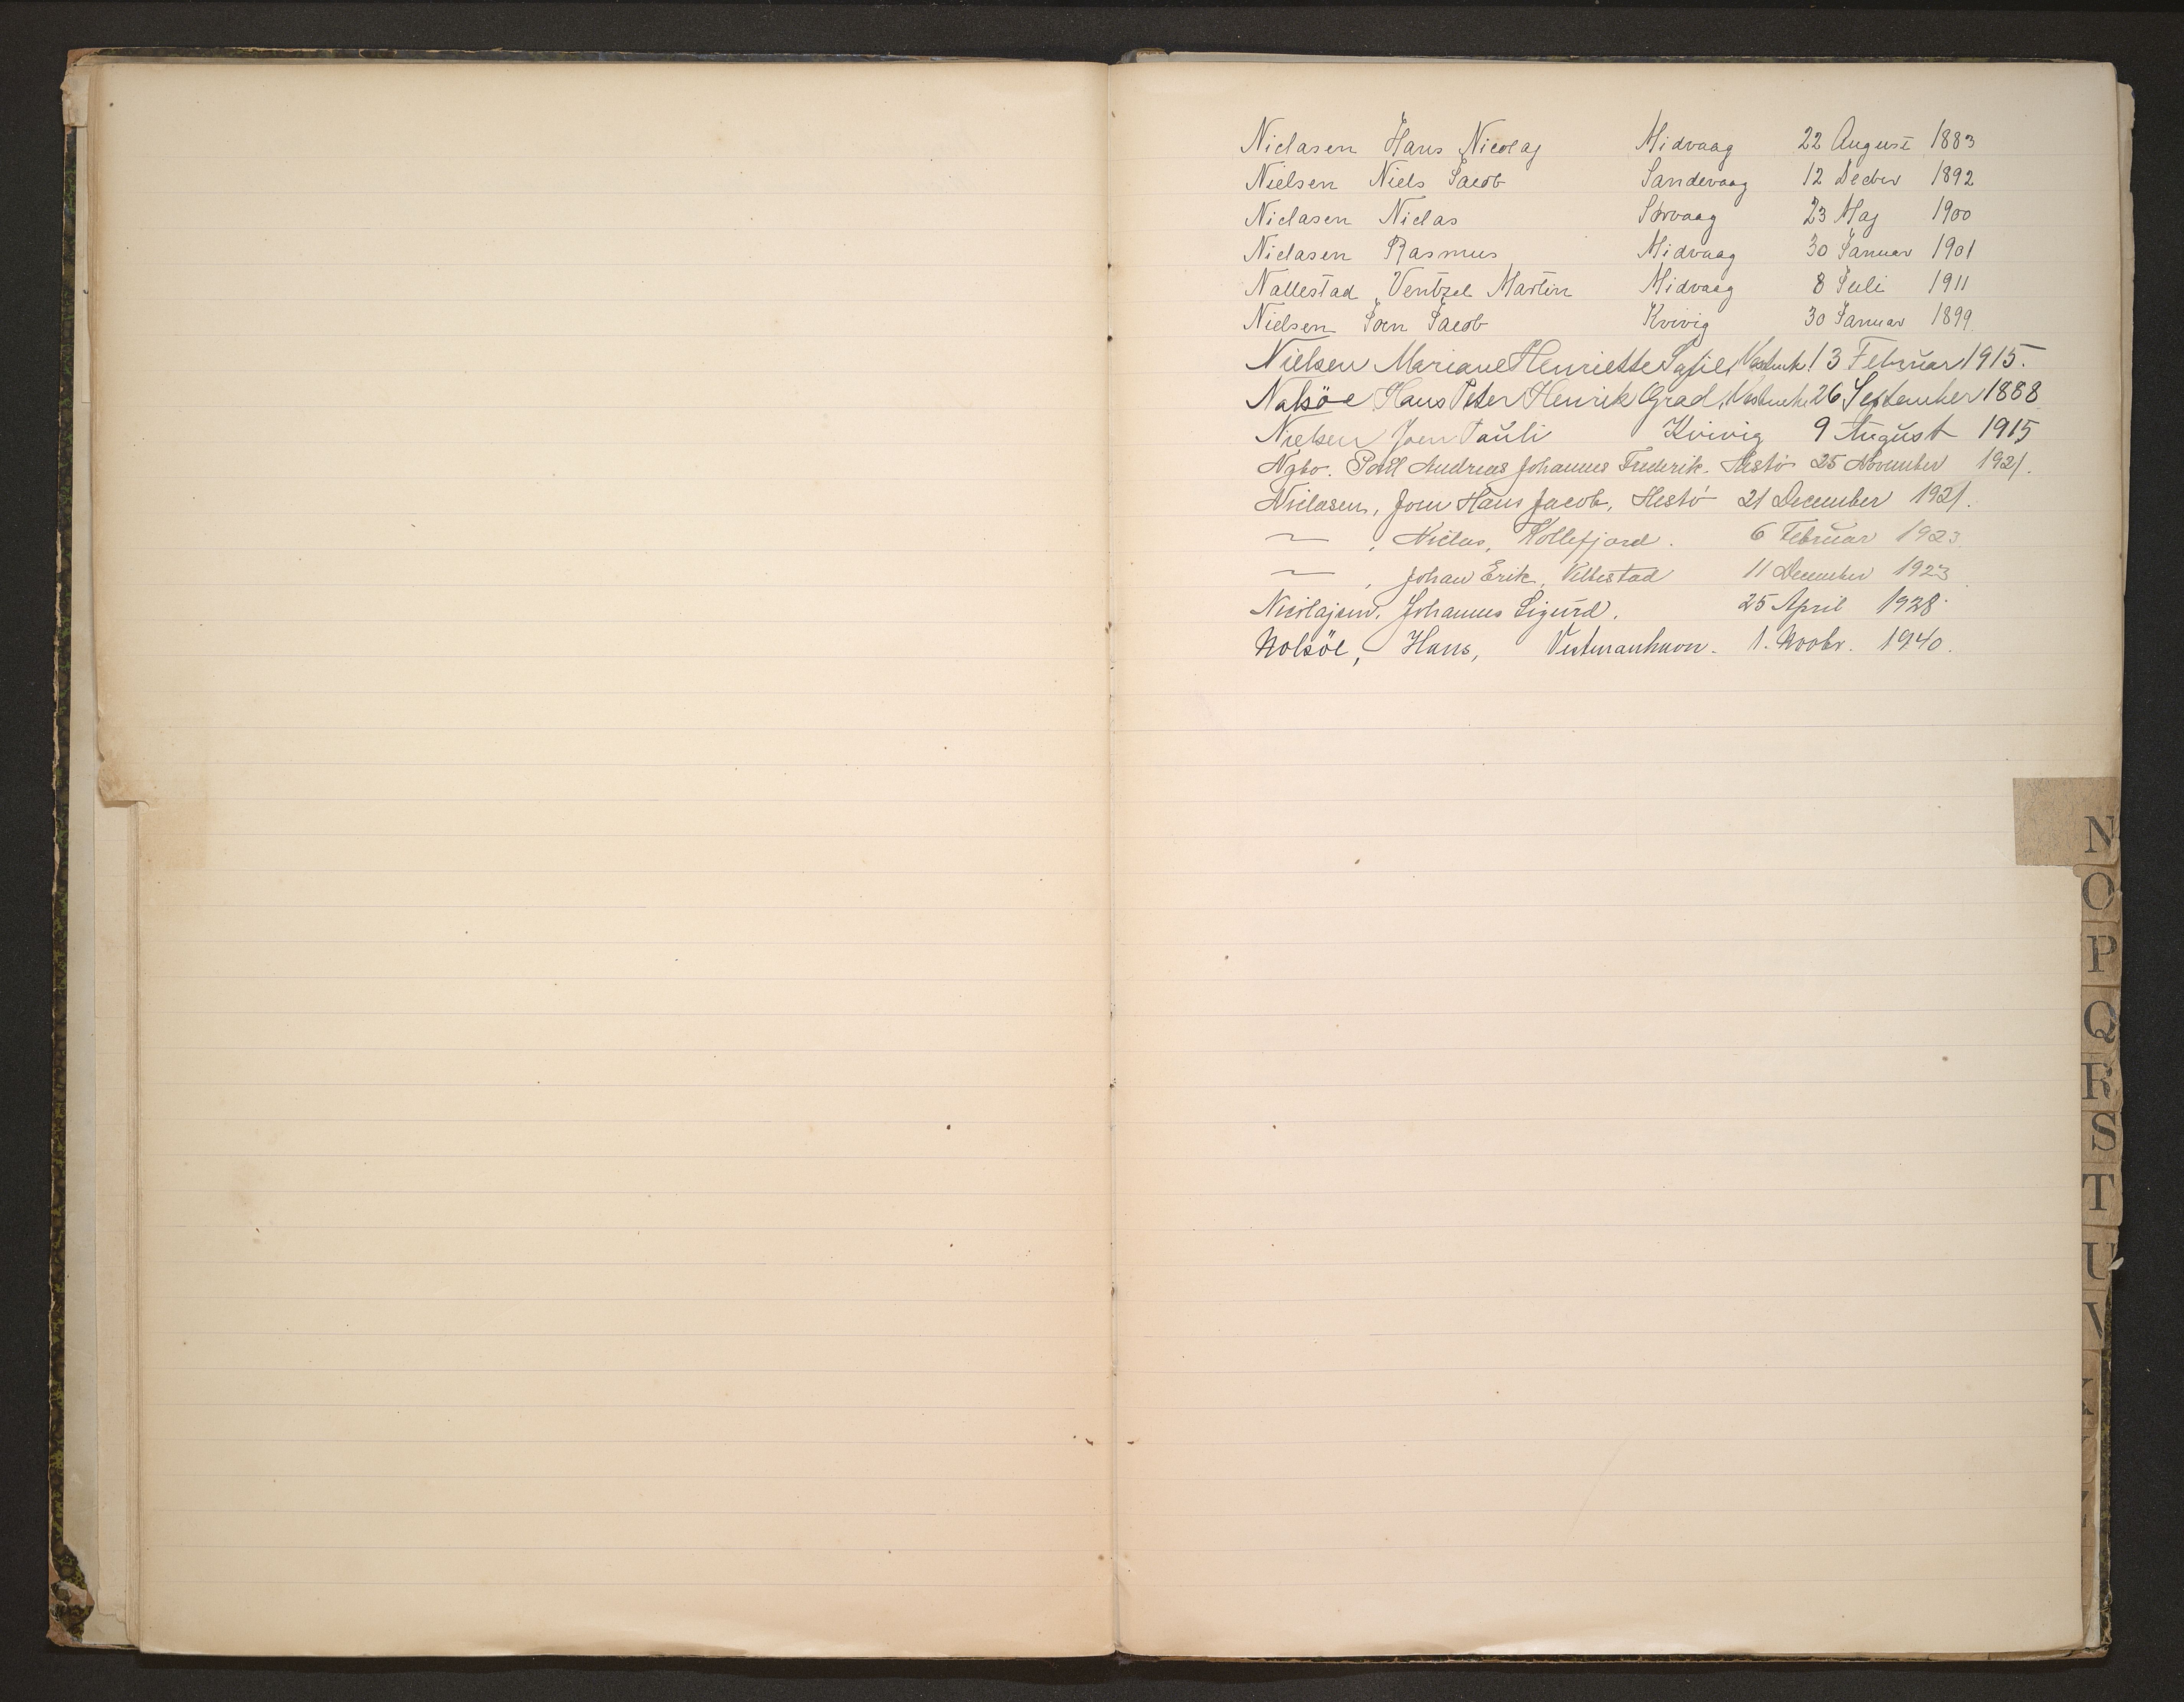 Niclasen Hans Nicolaj Midvaag 22 August 1883
Nielsen Niels Jacob Sandevaag 12 Decber 1892
Niclasen Niclas Sørvaag 23 Maj 1900
Niclasen Rasmus Midvaag 30 Januar 1901
Nallestad Ventzel Martin Midvaag 8 Juli 1911
Nielsen Joen Jacob Kvivig 30 Januar 1899
Nielsen Mariane Henriette Sofie, 13 Februar 1915.
Nolsöe Hans Peter Henrik Grad, 26 September 1888
Nielsen Joen Pauli Kvivig 9 August 1915
Poull Andreas Johannes Frederik. Hestö 25 November 1921.
Niclasen, Joen Hans Jacob, Hestö 21 December 1921.
— , Niclas, Kollefjord. 6 Februar 1923.
— , Johan Erik, Velbestad 11 December 1923.
Nicolajsen, Johannes Sigurd. 25 April 1928.
Nolsöe, Hans, Vestmanhavn. 1. Novbr. 1940.
N
O
P
Q
R
S
T
U
V